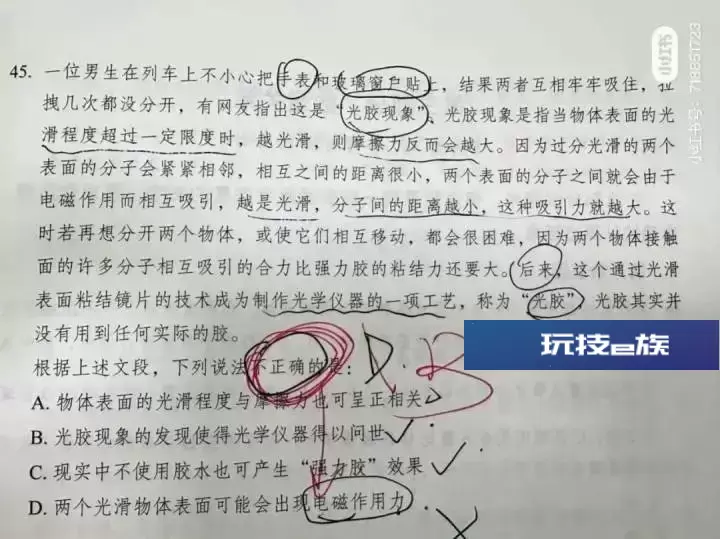 小红书
小红书号：718851723
45. 一位男生在列车上不小心把手表和玻璃窗户贴上，结果两者互相牢牢吸住，拉
拽几次都没分开，有网友指出这是“光胶现象”。光胶现象是指当物体表面的光
滑程度超过一定限度时，越光滑，则摩擦力反而会越大。因为过分光滑的两个
表面的分子会紧紧相邻，相互之间的距离很小，两个表面的分子之间就会由于
电磁作用而相互吸引，越是光滑，分子间的距离越小，这种吸引力就越大。这
时若再想分开两个物体，或使它们相互移动，都会很困难，因为两个物体接触
面的许多分子相互吸引的合力比强力胶的粘结力还要大。后来，这个通过光滑
表面粘结镜片的技术成为制作光学仪器的一项工艺，称为“光胶”，光胶其实并
没有用到任何实际的胶。
玩技e族
根据上述文段，下列说法不正确的是： D B
A. 物体表面的光滑程度与摩擦力也可呈正相关
B. 光胶现象的发现使得光学仪器得以问世
C. 现实中不使用胶水也可产生“强力胶”效果
D. 两个光滑物体表面可能会出现电磁作用力